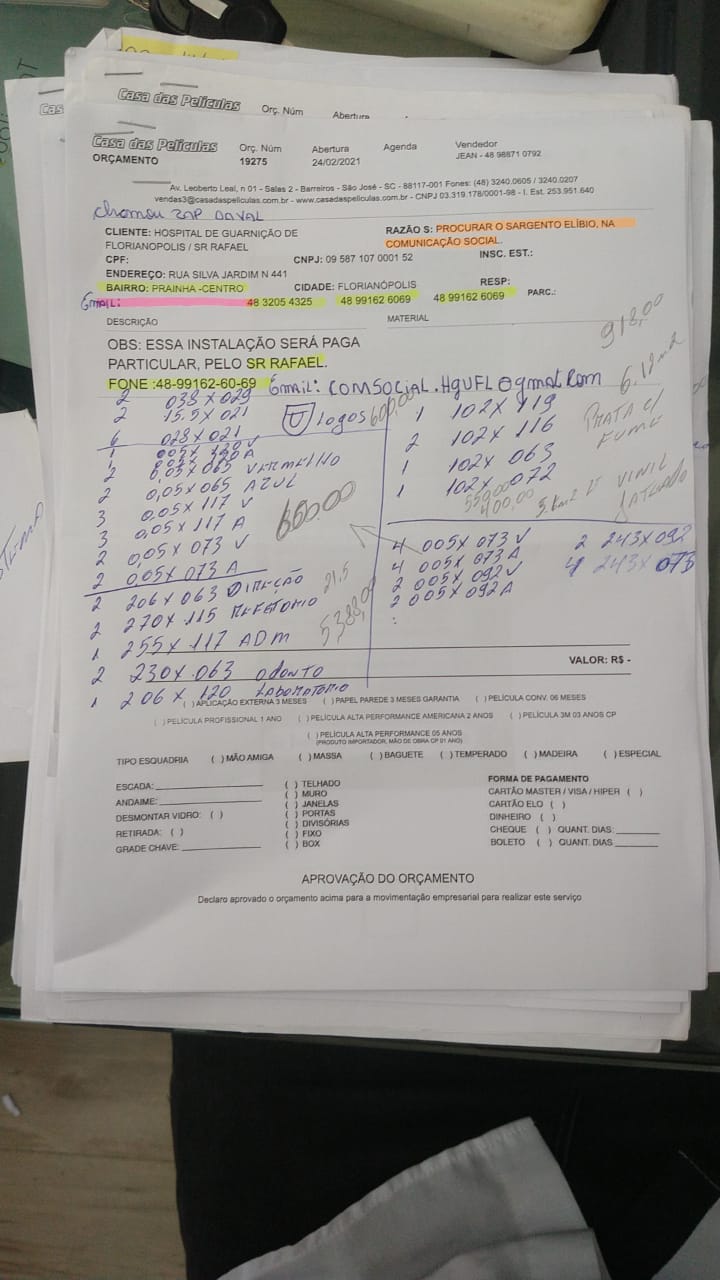 Casa das Películas Orç. Núm Abertura
Casa das Películas Orç. Núm Abertura Agenda Vendedor
ORÇAMENTO 19275 24/02/2021 JEAN - 48 98871 0792
Av. Leoberto Leal, n 01 - Salas 2 - Barreiros - São José - SC - 88117-001 Fones: (48) 3240.0605 / 3240.0207
vendas3@casadaspeliculas.com.br - www.casadaspeliculas.com.br - CNPJ 03.319.178/0001-98 - I. Est. 253.951.640
chamou ZAP
CLIENTE: HOSPITAL DE GUARNIÇÃO DE RAZÃO S: PROCURAR O SARGENTO ELÍBIO, NA
FLORIANOPOLIS / SR RAFAEL COMUNICAÇÃO SOCIAL.
CPF: CNPJ: 09 587 107 0001 52 INSC. EST.:
ENDEREÇO: RUA SILVA JARDIM N 441
BAIRRO: PRAINHA -CENTRO CIDADE: FLORIANÓPOLIS RESP:
EMAIL: 48 3205 4325 48 99162 6069 48 99162 6069 PARC.:
DESCRIÇÃO MATERIAL
918,00
OBS: ESSA INSTALAÇÃO SERÁ PAGA
PARTICULAR, PELO SR RAFAEL.
FONE :48-99162-60-69 Email: COMSOCIAL.HGUFL@gmail.com
2 038 X 029 1 102 X 119
2 15.5 X 021 logos 600,00 2 102 X 116 PRATA c/ FUME
6 028 X 021 1 102 X 063
1 005 X 120 V 1 102 X 072
1 005 X 120 A 550,00
2 0,05 X 065 VERMELHO 400,00 VINIL JATEADO
2 0,05 X 065 AZUL
3 0,05 X 117 V 650,00
3 0,05 X 117 A 4 005 X 073 V 2 243 X 092
2 0,05 X 073 V 4 005 X 073 A 4 243 X 073
2 0,05 X 073 A 2 005 X 092 V
2 206 X 063 DIREÇÃO 21,5 2 005 X 092 A
2 270 X 115 REFEITORIO 538,00
1 255 X 117 ADM
2 230 X 063 ODONTO VALOR: R$ -
1 206 X 120 LABORATORIO
( ) APLICAÇÃO EXTERNA 3 MESES ( ) PAPEL PAREDE 3 MESES GARANTIA ( ) PELÍCULA CONV. 06 MESES
( ) PELÍCULA PROFISSIONAL 1 ANO ( ) PELÍCULA ALTA PERFORMANCE AMERICANA 2 ANOS ( ) PELÍCULA 3M 03 ANOS CP
( ) PELÍCULA ALTA PERFORMANCE 05 ANOS
(PRODUTO IMPORTADOR, MÃO DE OBRA CP 01 ANO)
TIPO ESQUADRIA ( ) MÃO AMIGA ( ) MASSA ( ) BAGUETE ( ) TEMPERADO ( ) MADEIRA ( ) ESPECIAL
ESCADA: ( ) TELHADO FORMA DE PAGAMENTO
ANDAIME: ( ) MURO CARTÃO MASTER / VISA / HIPER ( )
DESMONTAR VIDRO: ( ) ( ) JANELAS CARTÃO ELO ( )
RETIRADA: ( ) ( ) PORTAS DINHEIRO ( )
GRADE CHAVE: ( ) DIVISÓRIAS CHEQUE ( ) QUANT. DIAS:
( ) FIXO BOLETO ( ) QUANT. DIAS
( ) BOX
APROVAÇÃO DO ORÇAMENTO
Declaro aprovado o orçamento acima para a movimentação empresarial para realizar este serviço